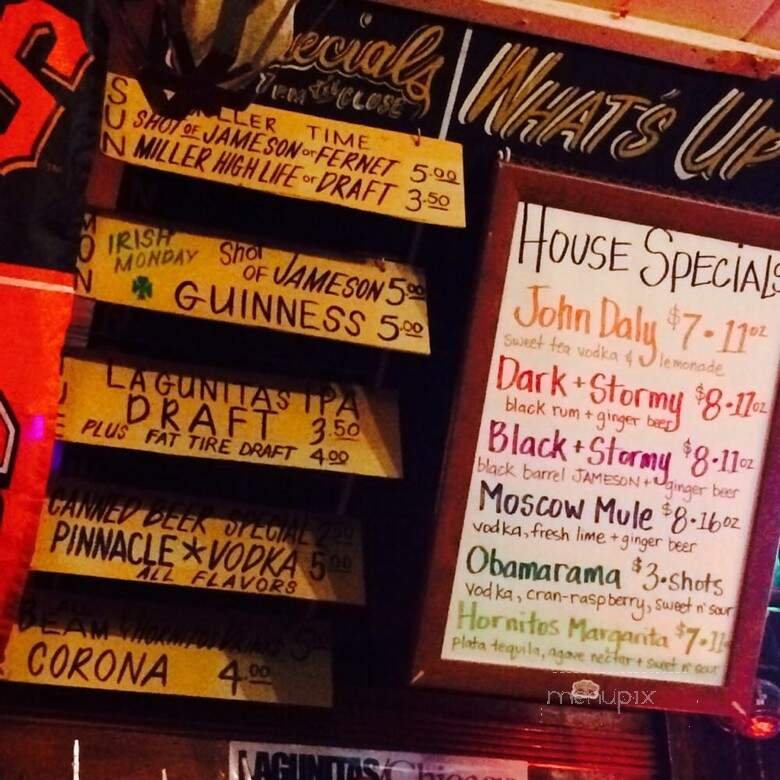 7PM TO CLOSE
WHAT'S UP
SUN
TIME
SHOT OF JAMESON or FERNET 5.00
MILLER HIGH LIFE or DRAFT 3.50
MON
IRISH MONDAY
Shot OF JAMESON 5.00
GUINNESS 5.00
LAGUNITAS IPA
DRAFT 3.50
PLUS FAT TIRE DRAFT 4.00
CANNED BEER SPECIAL 2.50
PINNACLE * VODKA 5.00
ALL FLAVORS
BEAM
CORONA 4.00
HOUSE SPECIALS
John Daly $7 - 11oz
sweet tea vodka & lemonade
Dark + Stormy $8 - 11oz
black rum + ginger beer
Black + Stormy $8 - 11oz
black barrel JAMESON + ginger beer
Moscow Mule $8 - 16oz
vodka, fresh lime + ginger beer
Obamarama $3 - shots
vodka, cran-raspberry, sweet n' sour
Hornitos Margarita $7 - 11
plata tequila, agave nectar + sweet n' sour
menupix
LAGUNITAS